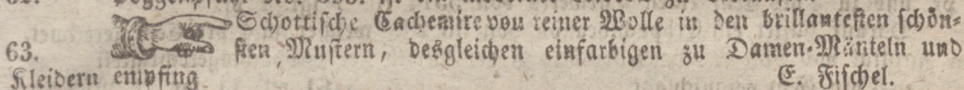 Schottische Cachemire von reiner Wolle in den brillantesten schön-
63. sten Mustern, desgleichen einfarbigen zu Damen-Mänteln und
Kleidern empfing E. Fischel.